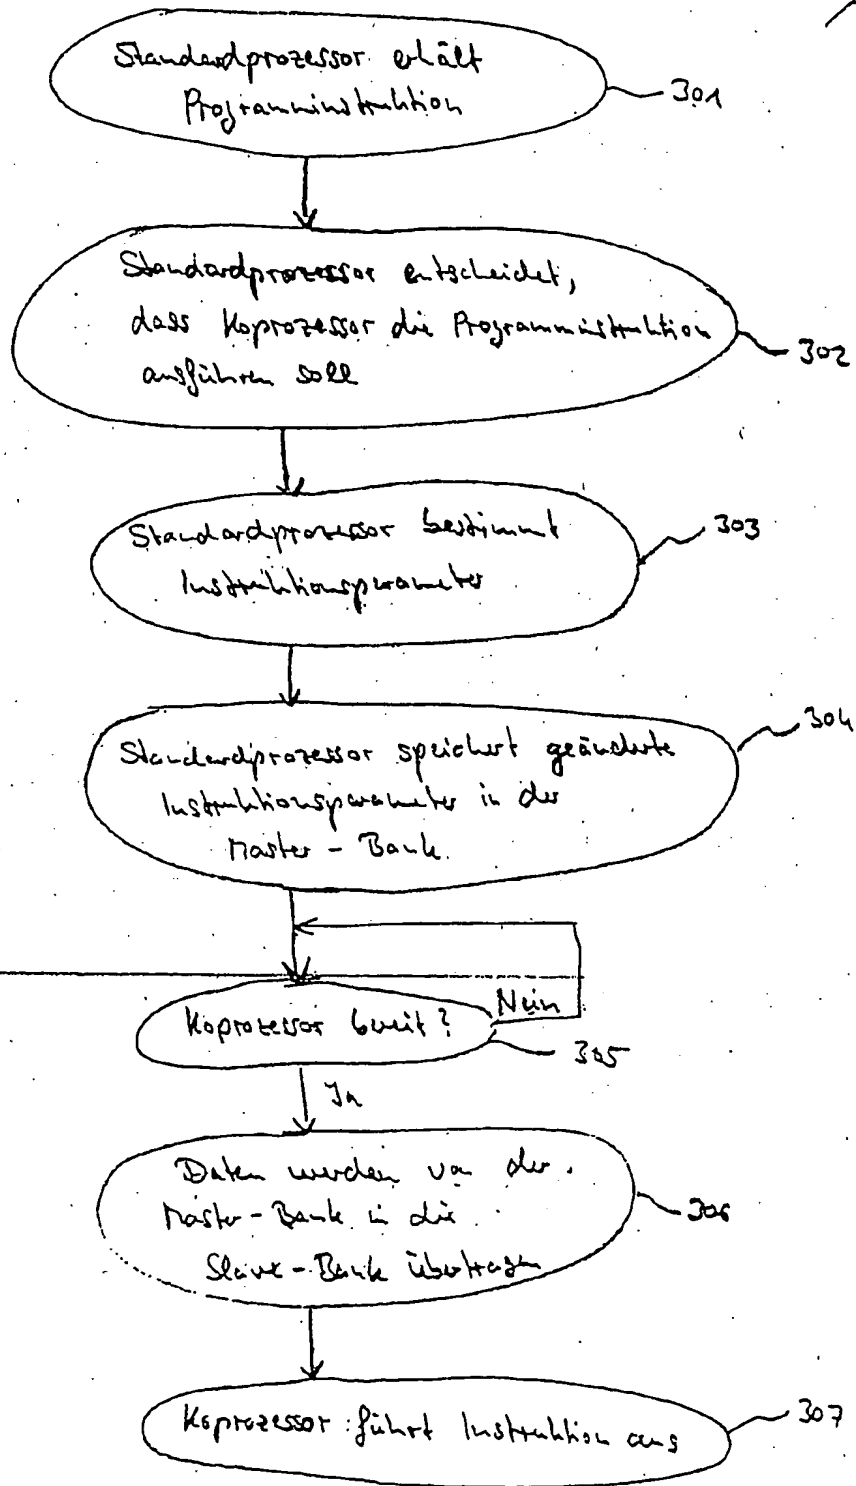 Standardprozessor erhält
Programminstruktion
301
Standardprozessor entscheidet,
dass Koprozessor die Programminstruktion
ausführen soll
302
Standardprozessor bestimmt
Instruktionsparameter
303
Standardprozessor speichert geänderte
Instruktionsparameter in der
Master-Bank
304
Koprozessor bereit?
Nein
305
Ja
Daten werden von der
Master-Bank in die
Slave-Bank übertragen
306
Koprozessor führt Instruktion aus
307